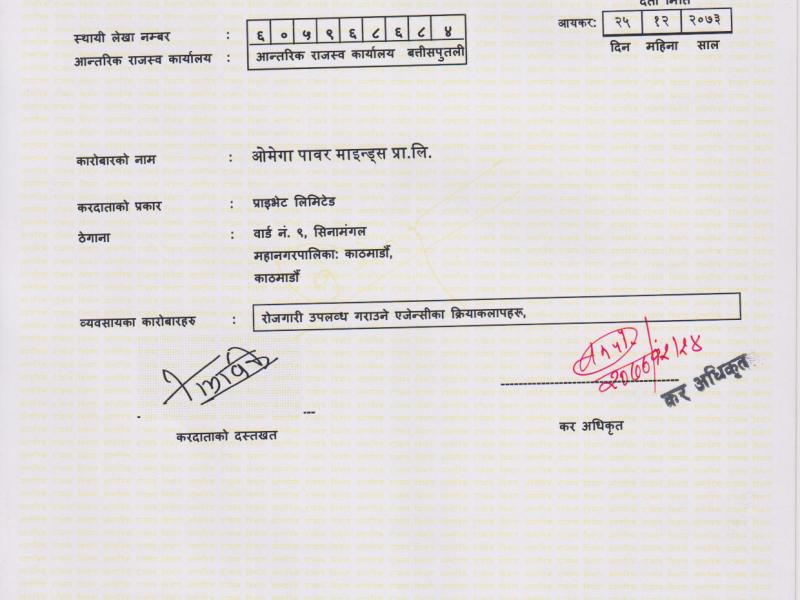 दर्ता मिति
स्थायी लेखा नम्बर : ६ ० ५ ९ ६ ८ ६ ८ ४
आयकर: २५ १२ २०७३
दिन महिना साल
आन्तरिक राजस्व कार्यालय : आन्तरिक राजस्व कार्यालय बत्तीसपुतली
कारोबारको नाम : ओमेगा पावर माइन्ड्स प्रा.लि.
करदाताको प्रकार : प्राइभेट लिमिटेड
ठेगाना : वार्ड नं. ९, सिनामंगल
महानगरपालिका: काठमाडौं,
काठमाडौं
व्यवसायका कारोबारहरु : रोजगारी उपलव्ध गराउने एजेन्सीका क्रियाकलापहरू,
कर अधिकृत
करदाताको दस्तखत
कर अधिकृत